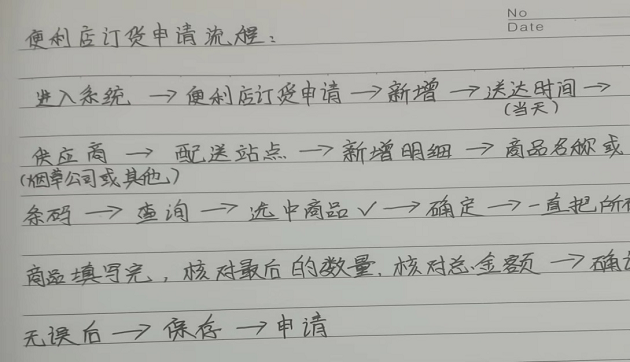 No
Date
便利店订货申请流程：
进入系统 → 便利店订货申请 → 新增 → 送达时间 →
(当天)
供应商 → 配送站点 → 新增明细 → 商品名称或
(烟草公司或其他)
条码 → 查询 → 选中商品 ✓ → 确定 → 一直把所
商品填写完，核对最后的数量、核对总金额 → 确
无误后 → 保存 → 申请